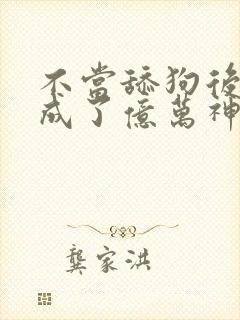 不當舔狗後
成了億萬神
龔家洪